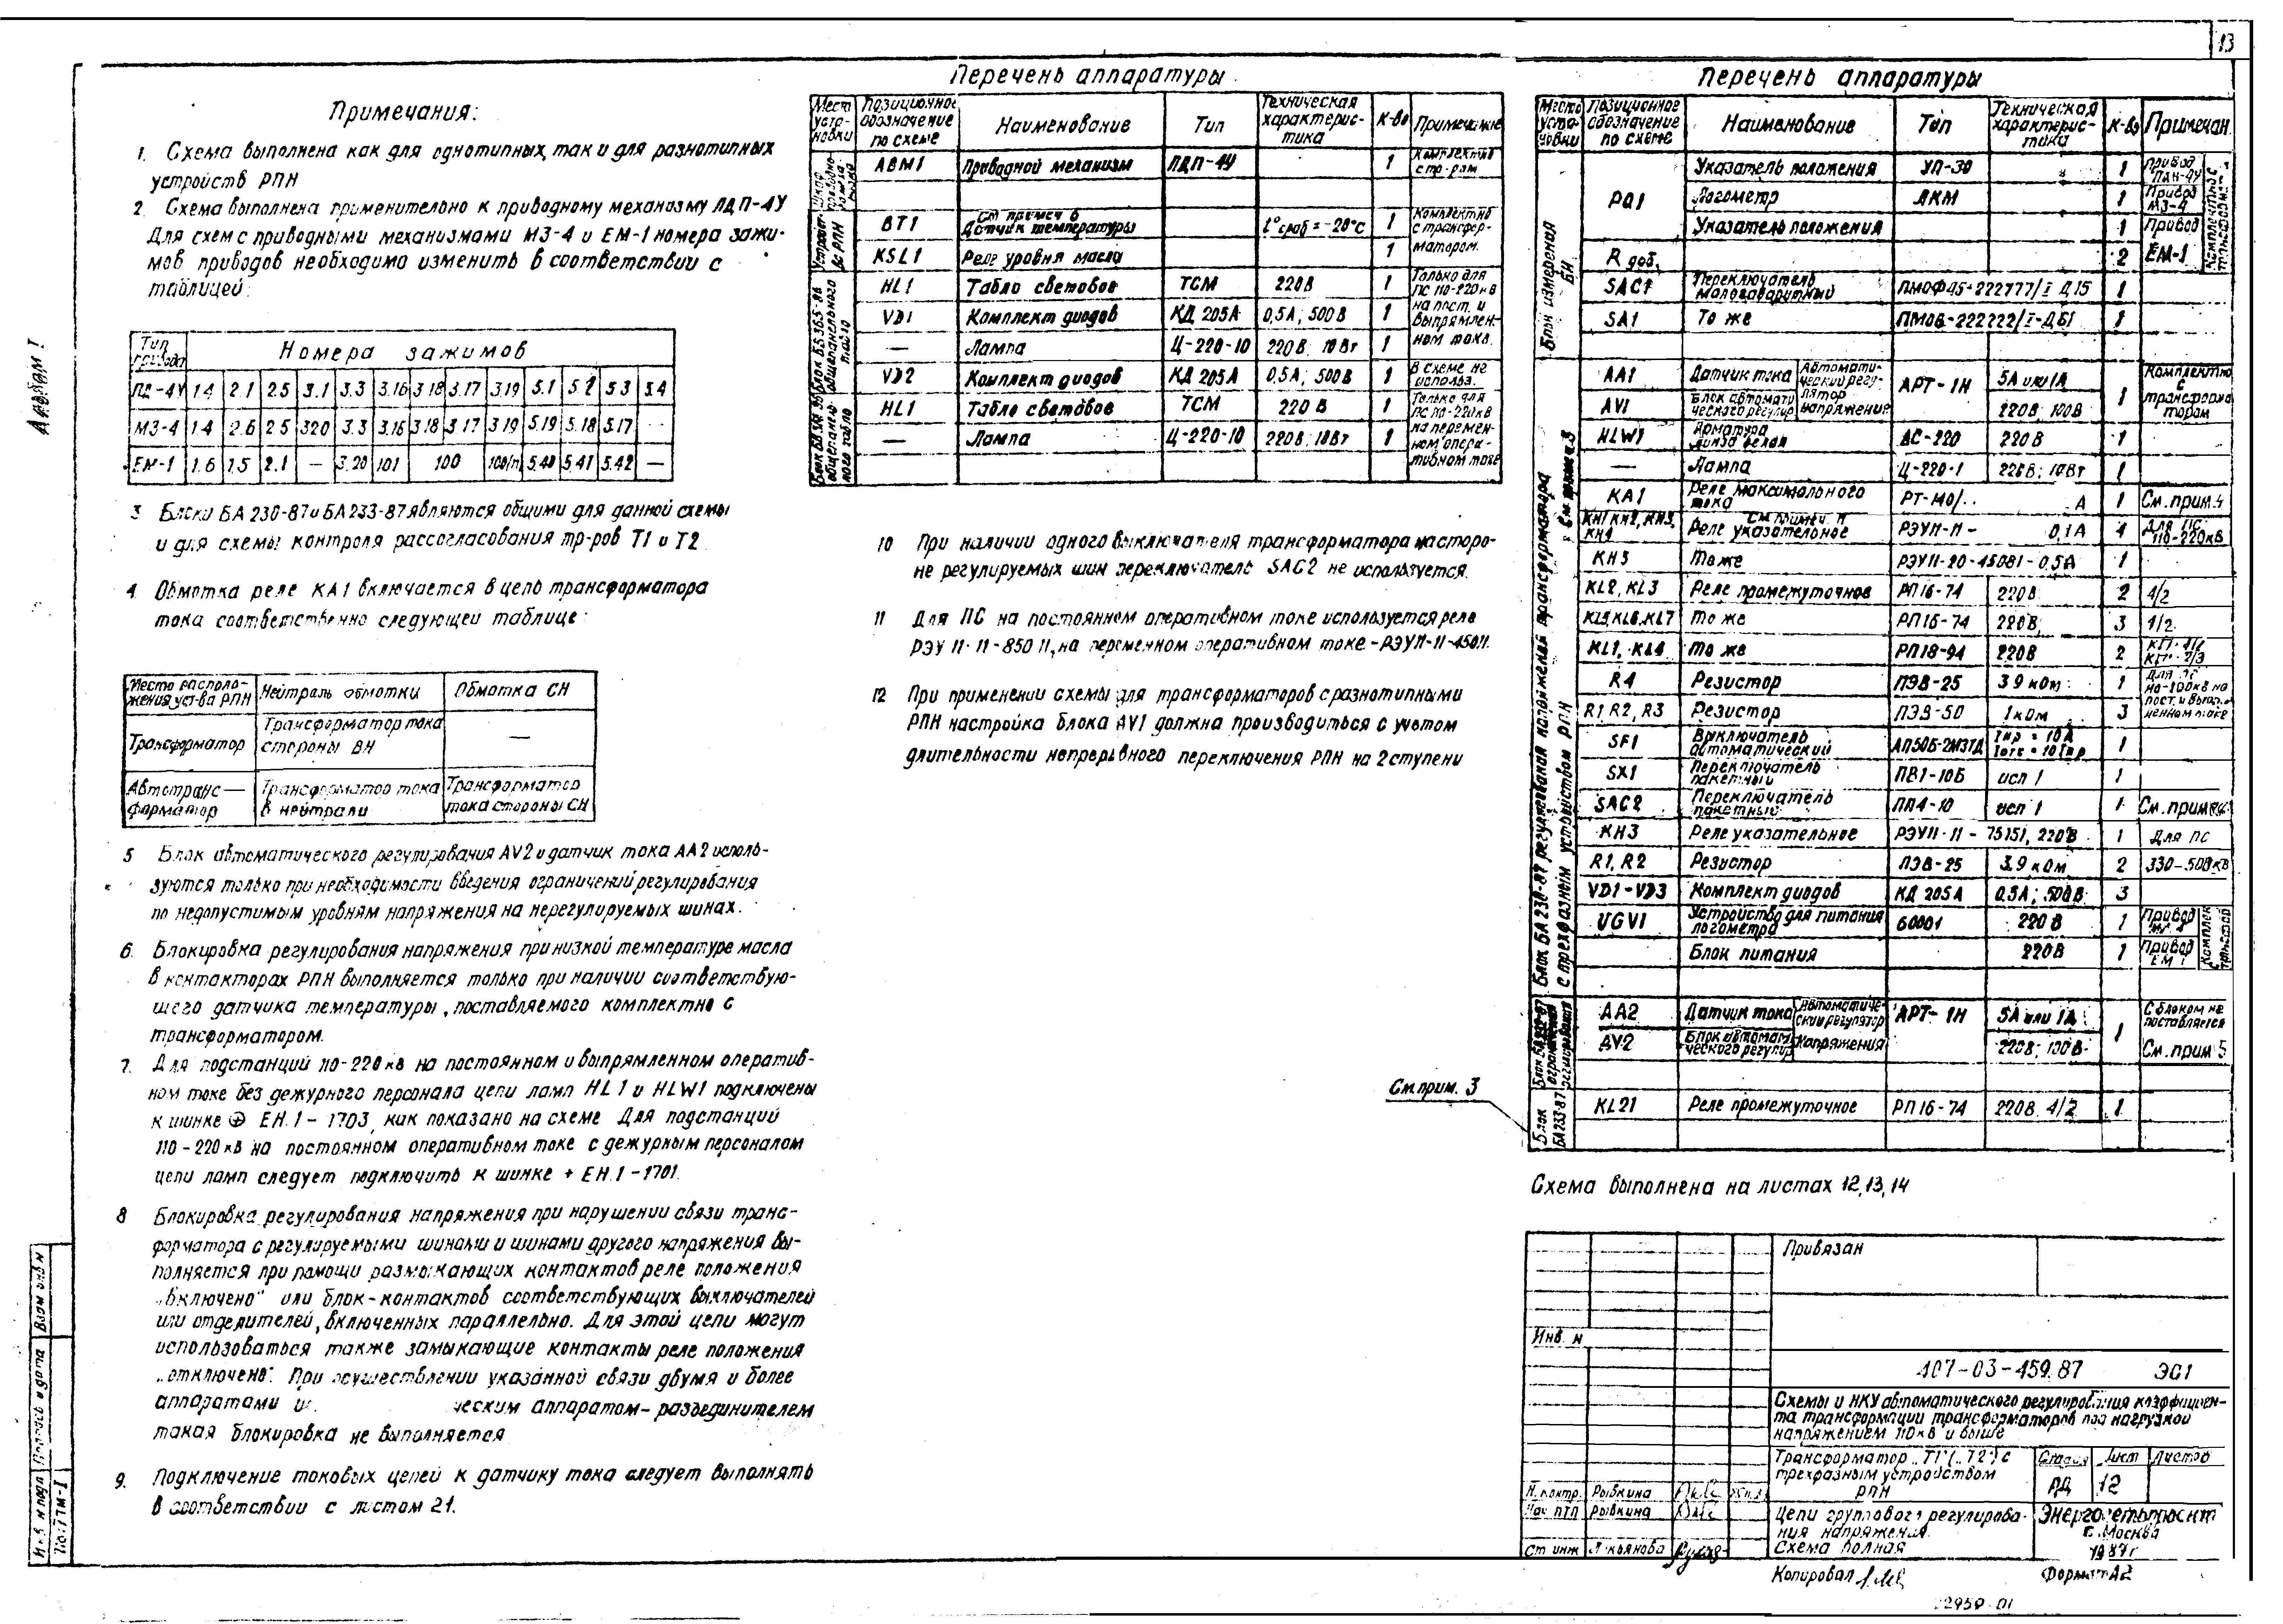 13
Альбом I
Примечания:
1. Схема выполнена как для однотипных, так и для разнотипных
устройств РПН
2. Схема выполнена применительно к приводному механизму ПДП-4У
Для схем с приводными механизмами МЗ-4 и ЕМ-1 номера зажи-
мов приводов необходимо изменить в соответствии с
таблицей:
Тип привода | Номера зажимов
ПД-4У | 1.4 | 2.1 | 2.5 | 3.1 | 3.3 | 3.16 | 3.18 | 3.17 | 3.19 | 5.1 | 5.2 | 5.3 | 5.4
МЗ-4 | 1.4 | 2.6 | 2.5 | 320 | 3.3 | 3.16 | 3.18 | 3.17 | 3.19 | 5.19 | 5.18 | 5.17 | -
ЕМ-1 | 1.6 | 1.5 | 2.1 | — | 3.20 | 101 | 100 | 100/п | 5.40 | 5.41 | 5.42 | —
3 Блоки БА 230-87 и БА 233-87 являются общими для данной схемы
и для схемы контроля рассогласования тр-ров Т1 и Т2
4 Обмотка реле КА1 включается в цепь трансформатора
тока соответственно следующей таблице:
Место располо-жения уст-ва РПН | Нейтраль обмотки | Обмотка СН
Трансформатор | Трансформатор тока стороны ВН | —
Автотранс—форматор | Трансформатор тока в нейтрали | Трансформатор тока стороны СН
5 Блок автоматического регулирования AV2 и датчик тока АА2 исполь-
зуются только при необходимости введения ограничений регулирования
по недопустимым уровням напряжения на нерегулируемых шинах.
6. Блокировка регулирования напряжения при низкой температуре масла
в контакторах РПН выполняется только при наличии соответствую-
щего датчика температуры, поставляемого комплектно с
трансформатором.
7. Для подстанций 110-220 кв на постоянном и выпрямленном оператив-
ном токе без дежурного персонала цепи ламп HL1 и HLW1 подключены
к шинке ⊕ ЕН.1 - 1703, как показано на схеме Для подстанций
110-220 кв на постоянном оперативном токе с дежурным персоналом
цепи ламп следует подключить к шинке + ЕН.1-1701.
8 Блокировка регулирования напряжения при нарушении связи транс-
форматора с регулируемыми шинами и шинами другого напряжения вы-
полняется при помощи размыкающих контактов реле положения
„включено" или блок-контактов соответствующих выключателей
или отделителей, включенных параллельно. Для этой цели могут
использоваться также замыкающие контакты реле положения
„отключено". При осуществлении указанной связи двумя и более
аппаратами и ческим аппаратом-разъединителем
такая блокировка не выполняется
9. Подключение токовых цепей к датчику тока следует выполнять
в соответствии с листом 21.
Перечень аппаратуры
Место уста-новки | Позиционное обозначение по схеме | Наименование | Тип | Техническая характерис-тика | К-во | Примечание
АВМ1 | Приводной механизм | ПДП-4У | 1 | Комплектно с тр-ром
ВТ1 | См примеч 6 Датчик температуры | t° сраб = -20°С | 1 | Комплектно с трансфор-матором.
KSL1 | Реле уровня масла | 1
HL1 | Табло световое | ТСМ | 220В | 1 | Только для ПС 110-220кв на пост. и выпрямлен-ном токе.
VD1 | Комплект диодов | КД 205А | 0,5А; 500В | 1
— | Лампа | Ц-220-10 | 220В; 10Вт | 1
VD2 | Комплект диодов | КД 205А | 0,5А; 500В | 1 | В схеме не использ.
HL1 | Табло световое | ТСМ | 220 В | 1 | Только для ПС 110-220кв на перемен-ном опера-тивном токе
— | Лампа | Ц-220-10 | 220В; 10Вт | 1
10 При наличии одного выключателя трансформатора на сторо-
не регулируемых шин переключатель SAC2 не используется.
11 Для ПС на постоянном оперативном токе используется реле
РЭУ 11-11-850 11, на переменном оперативном токе-РЭУ11-11-45011.
12 При применении схемы для трансформаторов с разнотипными
РПН настройка блока AV1 должна производиться с учетом
длительности непрерывного переключения РПН на 2 ступени
Перечень аппаратуры
Место уста-новки | Позиционное обозначение по схеме | Наименование | Тип | Техническая характерис-тика | К-во | Примечан.
Блок измерения БН
PQ1 | Указатель положения | УП-30 | 1 | Привод ПДП-4У
Логометр | ЛКМ | 1 | Привод МЗ-4
Указатель положения | 1 | Привод
R доб. | 2 | ЕМ-1
SAC1 | Переключатель малогабаритный | ПМОФ45-222777/I Д15 | 1
SA1 | То же | ПМОВ-222222/I-Д61 | 1
Блок БА 230-87 регулирования напряжения трансформатора с трехфазным устройством РПН См. прим 3
АА1 | Датчик тока | Автомати-ческий регу-лятор напряжения | АРТ-1Н | 5А или 1А | 1 | Комплектно с трансформатором
AV1 | Блок автомати ческого регулир | 220В; 100В
HLW1 | Арматура линза белая | АС-220 | 220В | 1
— | Лампа | Ц-220-1 | 220В; 10Вт | 1
КА1 | Реле максимального тока | РТ-40/.. | А | 1 | См. прим. 4
КН1, КН2, КН3, КН4 | См примеч. 11 Реле указательное | РЭУ11-11- | 0,1А | 4 | Для ПС 110-220кВ
КН5 | То же | РЭУ11-20-45081-0,5А | 1
KL2, KL3 | Реле промежуточное | РП16-74 | 220В | 2 | 4/2
KL5, KL6, KL7 | То же | РП16-74 | 220В | 3 | 4/2
KL1, KL4 | То же | РП18-94 | 220В | 2
R4 | Резистор | ПЭВ-25 | 3.9 кОм | 1
R1, R2, R3 | Резистор | ПЭВ-50 | 1 кОм | 3
SF1 | Выключатель автоматический | АП50Б-2М3ТД | Iнр = 10А Iотс = 10 Iнр | 1
SX1 | Переключатель пакетный | ПВ1-10Б | исп 1 | 1
SAC2 | Переключатель пакетный | ПП4-10 | исп 1 | 1 | См. прим.10
КН3 | Реле указательное | РЭУ11-11-75151, 220В | 1 | Для ПС
R1, R2 | Резистор | ПЭВ-25 | 3.9 кОм | 2 | 330-500кв
VD1-VD3 | Комплект диодов | КД 205А | 0,5А; 500В | 3
UGV1 | Устройство для питания логометра | 60001 | 220 В | 1 | Привод МЗ-4
Блок питания | 220В | 1 | Привод ЕМ 1
АА2 | Датчик тока | Автоматиче-ский регулятор напряжения | АРТ-1Н | 5А или 1А | 1 | С блоком не поставляется
AV2 | Блок автомат ческого регулир | 220В; 100В | См. прим 5
См. прим. 3
Блок БА 233-87
KL21 | Реле промежуточное | РП16-74 | 220В. 4/2 | 1
Схема выполнена на листах 12, 13, 14
Привязан
Инв. н
407-03-459.87 ЭС1
Схемы и НКУ автоматического регулирования коэффициен-
та трансформации трансформаторов под нагрузкой
напряжением 110кв и выше
Трансформатор „Т1" („Т2") с
трехфазным устройством
РПН
Стадия | Лист | Листов
РД | 12
Н. контр. Рыбкина
Нач ПТП Рыбкина
Ст инж Лукьянова
Цепи группового регулирова-
ния напряжения.
Схема полная
Энергосетьпроект
г. Москва
1987г
Копировал
Формат А2
Инв. н подл Подпись и дата Взам инв н